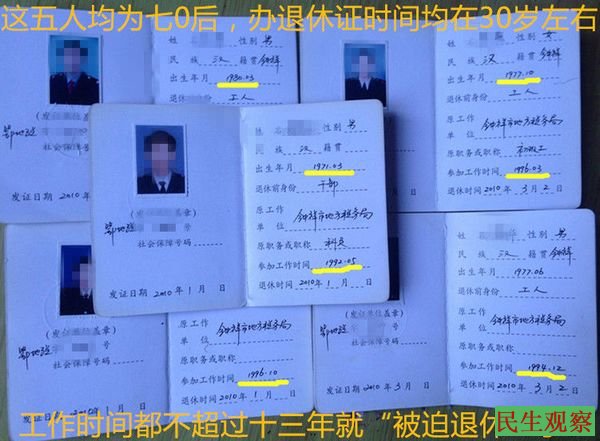 这五人均为七0后，办退休证时间均在30岁左右
性别 男
民族 汉 籍贯 钟祥
出生年月 1980.03
退休前身份 工人
(发证单位盖章)
社会保障号
发证日期 2010
性别 女
民族 汉 籍贯 钟祥
出生年月 1977.10
退休前身份 工人
原工作
单位 钟祥市地方税务局
原职务或职称 初级工
参加工作时间 1996.03
退休时间 2010年3月2日
性别 男
民族 汉 籍贯
出生年月 1971.03
退休前身份 干部
原工作
单位 钟祥市地方税务局
原职务或职称 科员
参加工作时间 1992.05
退休时间 2010年1月 日
(发证单位盖章)
鄂地税 号
社会保障号码
发证日期 2010年1月 日
(发证单位盖章)
鄂地税 号
社会保障号码
2010年1月 日
原工作
单位 钟祥市地方税务局
原职务或职称
参加工作时间 1996.10
退休时间 2010年1月 日
鄂地税 号
社会保障号码
发证日期 2010年3月 日
性别 男
民族 汉 籍贯 钟祥
出生年月 1977.06
退休前身份 工人
原工作
单位 钟祥市地方税务局
原职务或职称
参加工作时间 1994.12
退休时间 2010年3月2日
工作时间都不超过十三年就“被迫退休
民生观察